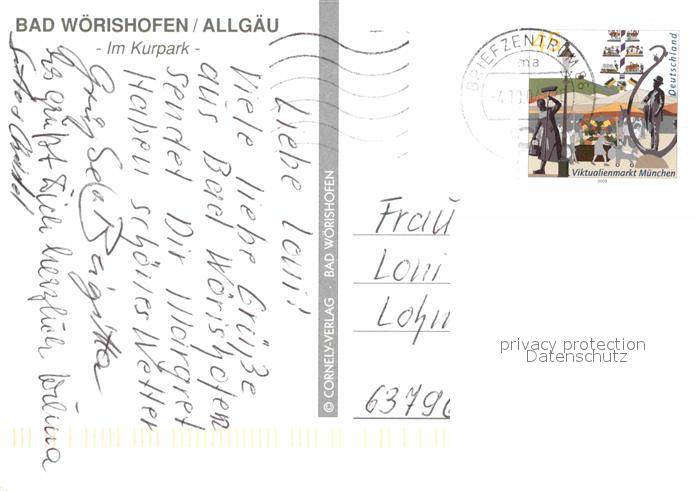 BAD WÖRISHOFEN / ALLGÄU
- Im Kurpark -
Liebe Loni!
Viele liebe Grüße
aus Bad Wörishofen
sendet Dir Margret
Haben schönes Wetter
Es grüßt Dich herzlich Wilma
© CORNELY-VERLAG · BAD WÖRISHOFEN
BRIEFZENTRUM
ma
45
Deutschland
Viktualienmarkt München
2003
Frau
Loni
Lohn
63796
privacy protection
Datenschutz